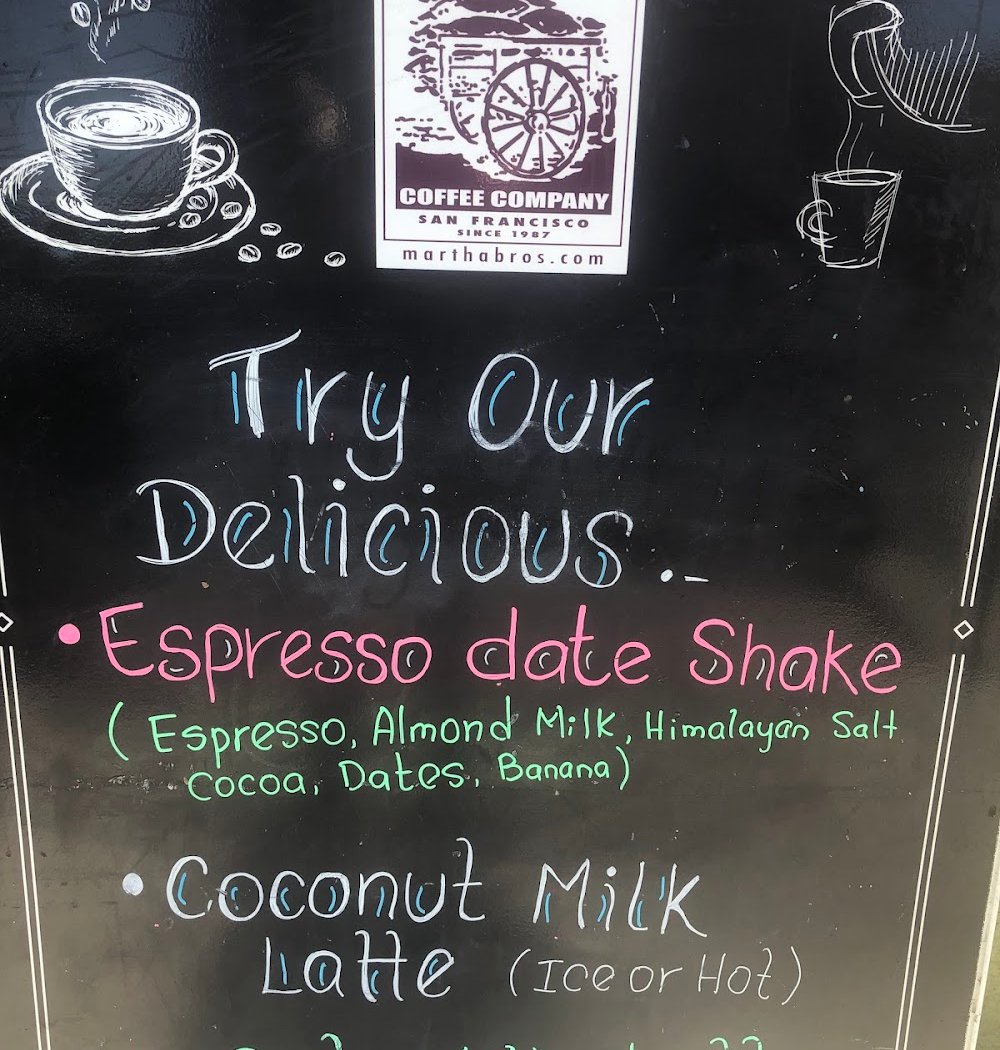 COFFEE COMPANY
SAN FRANCISCO
SINCE 1987
marthabros.com
Try Our
Delicious..-
• Espresso date Shake
( Espresso, Almond Milk, Himalayan Salt
Cocoa, Dates, Banana)
• Coconut Milk
Latte (Ice or Hot)